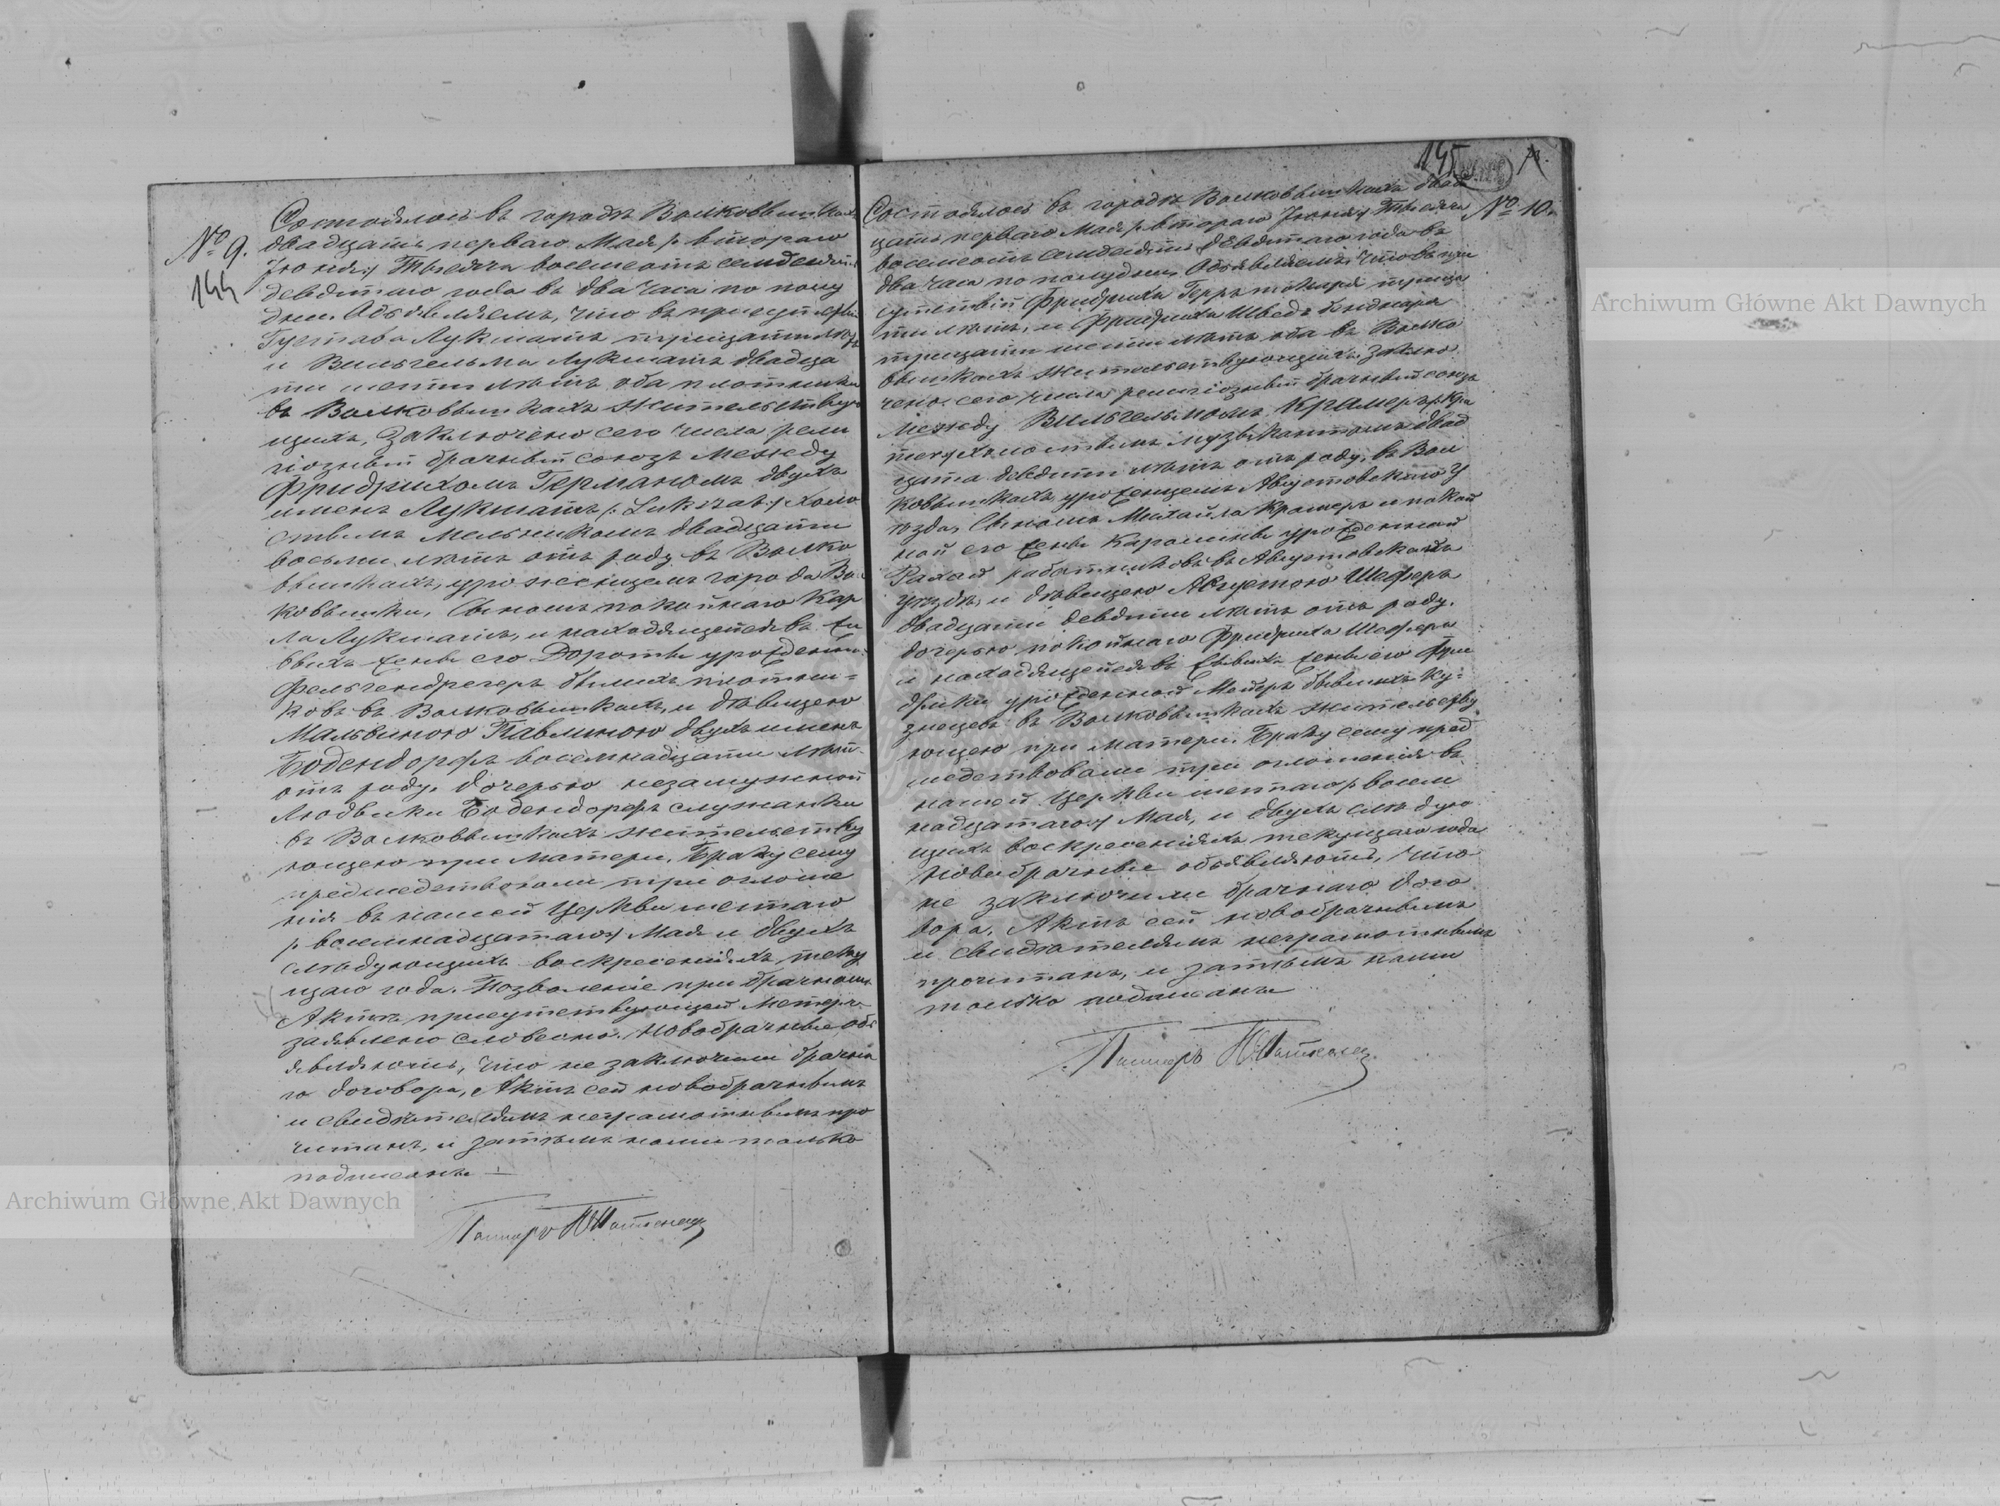 № 9.
144
Состоялось в городѣ Волковышкахъ
двадцать перваго Мая /: втораго
Іюня :/ тысяча восемсотъ семдесятъ
девятаго года въ два часа по полу
дни. Объявляемъ, что въ присутствіи
Густава Лукшатъ тридцати лѣтъ
и Вильгельма Лукшатъ двадца
ти шети лѣтъ оба плотники
въ Волковышкахъ жительствую
щихъ, Заключено сего числа рели
гіозный брачный союзъ между
Фридрихомъ Германомъ двухъ
именъ Лукшатъ /: Lukszat :/ холо
стымъ мельникомъ двадцати
восьми лѣтъ отъ роду, въ Волко
вышкахъ, урожденцемъ города Вол
ковышки, Сыномъ покойнаго Кар
ла Лукшатъ, и находящейся въ жи
выхъ жены его Доротѣи урожденной
Фельгендрегеръ бывшихъ плотни=
ковъ въ Волковышкахъ, и дѣвицею
Мальвиною Павлиною двухъ именъ
Бодендорфъ восемнадцати лѣтъ
отъ роду, дочерью незамужной
Людвики Бодендорфъ служанки
въ Волковышкахъ жительству
ющею при матери. Браку сему
предшедствовали три оглаше
нія въ нашей Церкви шестаго
/: восемнадцатаго :/ Мая и двухъ
слѣдующихъ воскресеніяхъ теку
щаго года. Позволеніе при брачномъ
Актѣ присутствующей Матери
заявлено словесно. Новобрачные объ
являютъ, что не заключили брачна
го договора, Актъ сей новобрачнымъ
и свидѣтелямъ неграмотнымъ про
читанъ, и затѣмъ нами только
подписанъ —
Пасторъ
145
№ 10.
Состоялось въ городѣ Волковышкахъ двад
цать перваго Мая /: втораго Іюня :/ тысяча
восемсотъ семдесятъ девятаго года въ
два часа по полудни, Объявляемъ, что въ при
сутствіи Фридриха Герръ токаря тридца
ти лѣтъ, и Фридриха Шведъ
тридцати шети лѣтъ оба въ Волко
вышкахъ жительствующихъ, заклю
чено сего числа религіозный брачный союзъ
между Вильгельмомъ Крамеръ
холостымъ музыкантомъ двад
цати девяти лѣтъ отъ роду, въ Вол
ковышкахъ, урожденцемъ Августовскаго У
ѣзда, Сыномъ Михаила Крамеръ и покой
ной его жены Каролины урожденной
работниковъ въ Августовскомъ
Уѣздѣ, и дѣвицею Августою Шеферъ
двадцати девяти лѣтъ отъ роду,
дочерью покойнаго Фридриха Шеферъ
и находящейся въ живыхъ жены его Фри
дрики урожденной Мейеръ бывшихъ ку=
знецовъ въ Волковышкахъ жительству
ющею при матери. Браку сему пред
шедствовали три оглашенія въ
нашей Церкви шестаго /: восем
надцатаго :/ Мая, и двухъ слѣдую
щихъ воскресеніяхъ текущаго года
Новобрачные объявляютъ, что
не заключили брачнаго дого
вора, Актъ сей новобрачнымъ
и свидѣтелямъ неграмотнымъ
прочитанъ, и затѣмъ нами
только подписанъ
Пасторъ
Archiwum Główne Akt Dawnych
Archiwum Główne Akt Dawnych